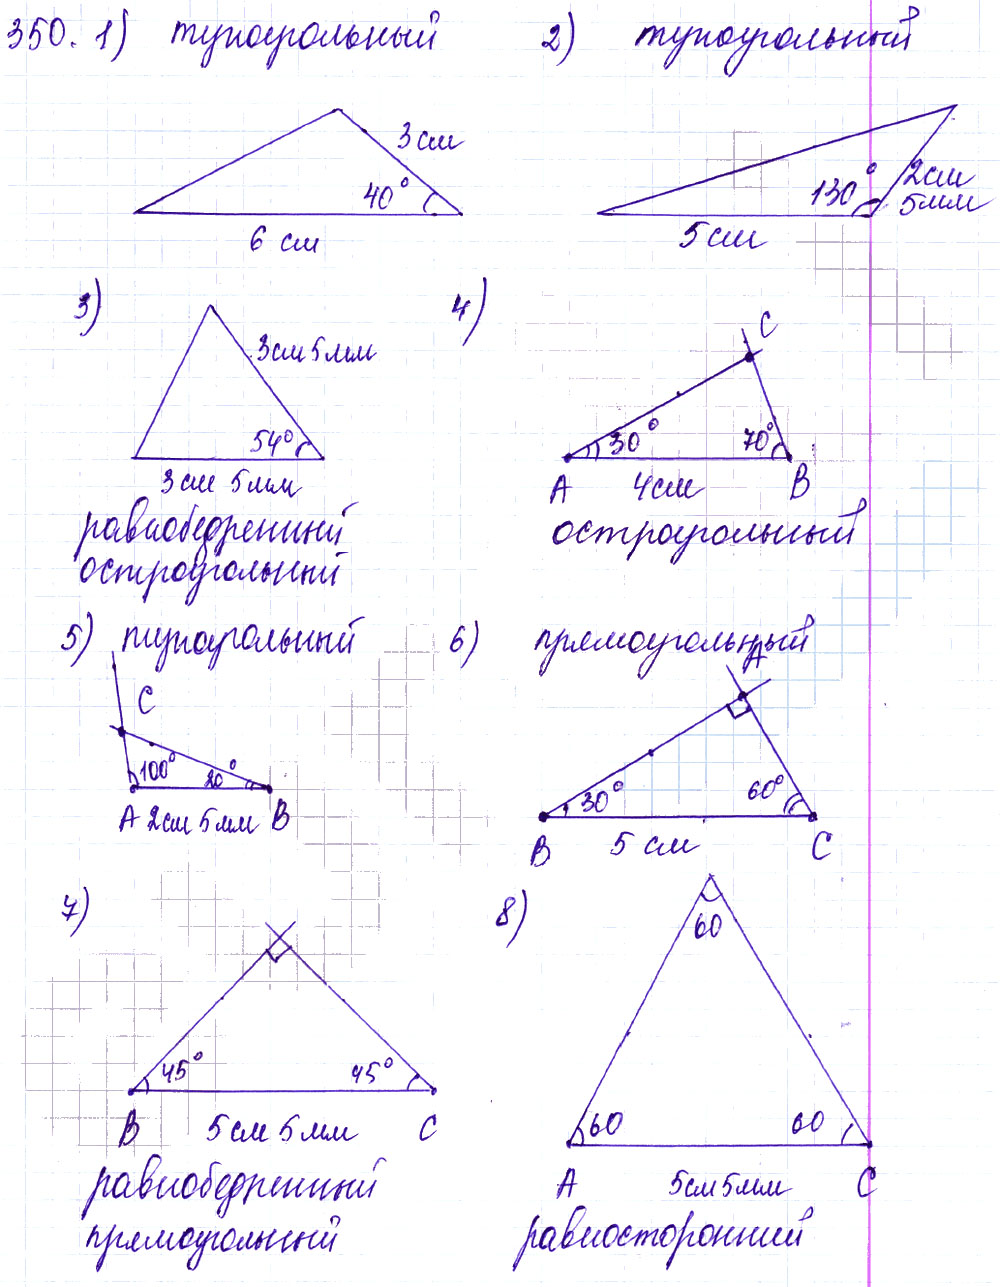 350. 1) тупоугольный 2) тупоугольный
3 см
40°
6 см
130°
2см
5мм
5см
3)
3см 5мм
54°
3см 5мм
равнобедренный
остроугольный
4)
C
30°
70°
A 4см B
остроугольный
5) тупоугольный
C
100°
20°
A 2см 5мм B
6) прямоугольный
A
30°
60°
B 5 см C
7)
45° 45°
B 5см 5мм C
равнобедренный
прямоугольный
8)
60
60 60
A 5см 5мм C
равносторонний